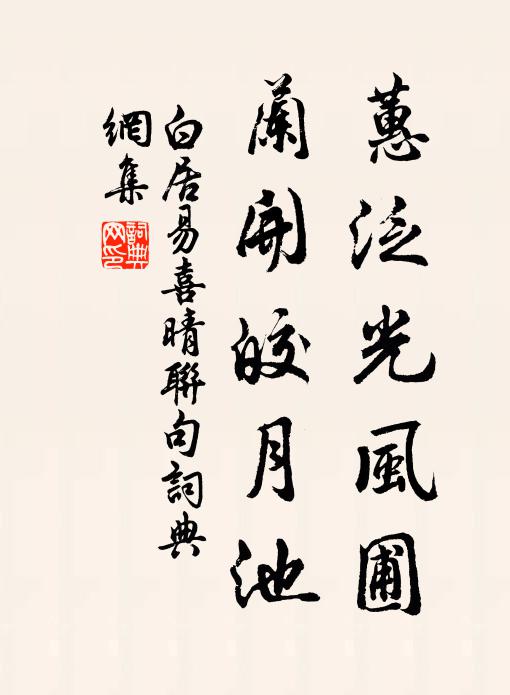 蕙泛光風圃
蘭開皎月池
白居易喜晴聯句詞典
網集
詞典
网印